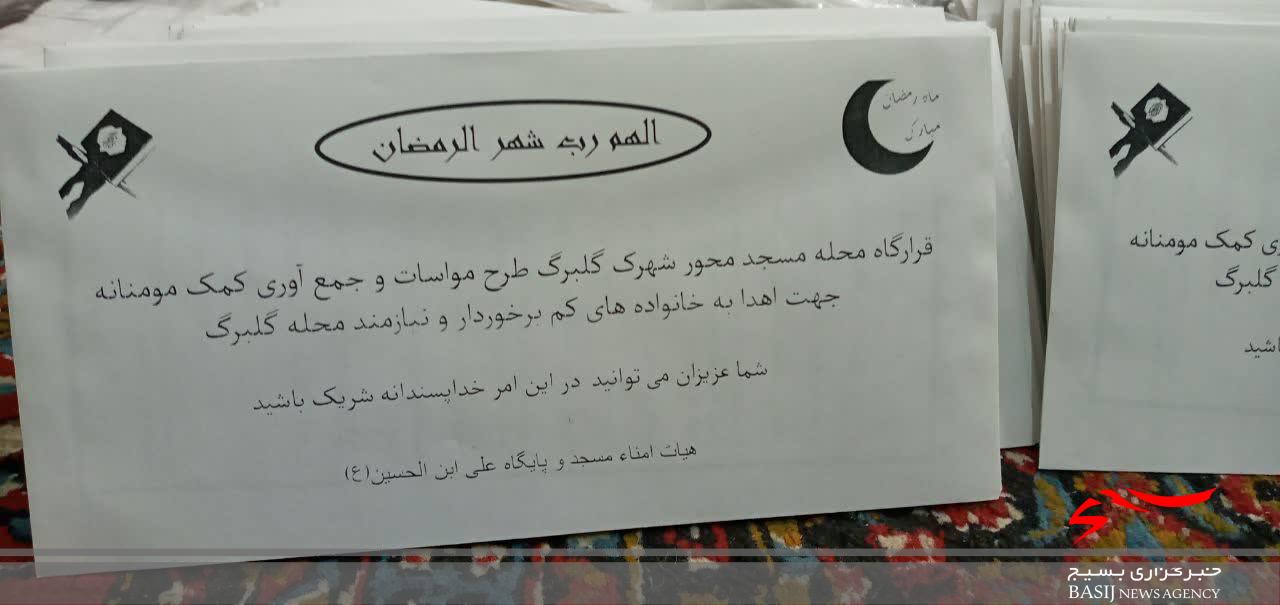 ماه رمضان
مبارک
الهم رب شهر الرمضان
قرارگاه محله مسجد محور شهرک گلبرگ طرح مواسات و جمع آوری کمک مومنانه
جهت اهدا به خانواده های کم برخوردار و نیازمند محله گلبرگ
شما عزیزان می توانید در این امر خداپسندانه شریک باشید
هیات امناء مسجد و پایگاه علی ابن الحسین(ع)
ی کمک مومنانه
گلبرگ
اشید
بسیج
خبرگزاری بسیج
BASIJ NEWS AGENCY